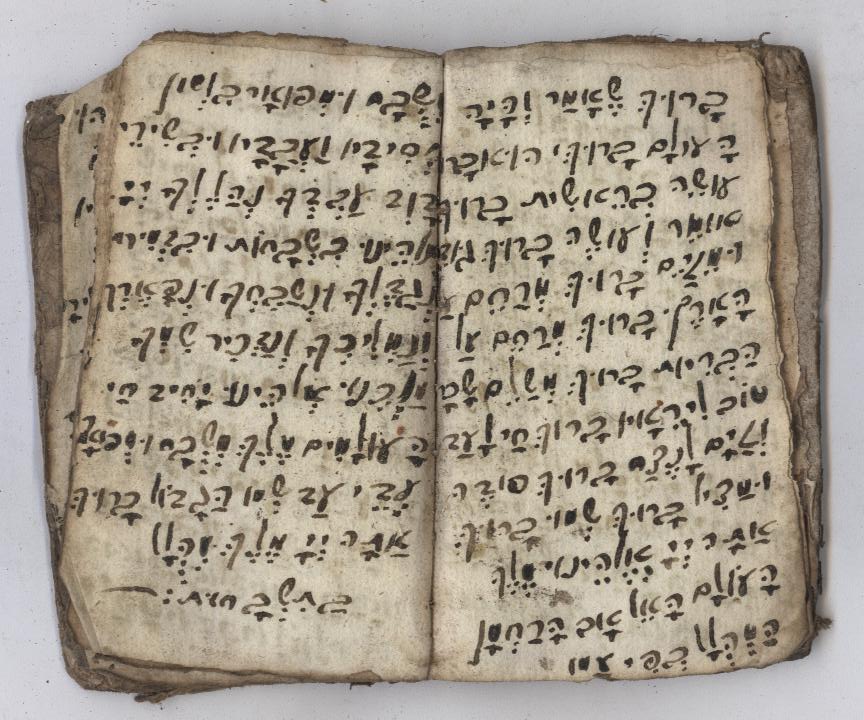 ברוך שאמר והיה
העולם ברוך הוא ברוך
עושה בראשית ברוך
אומר ועושה ברוך גוזר
ומקים ברוך מרחם על
הארץ ברוך מרחם על
הבריות ברוך משלם שכר
טוב ליראיו ברוך חי לעד
וקים לנצח ברוך פודה
ומציל ברוך שמו ברוך
אתה ייי אלהינו מלך
העולם האל אב הרחמן
המהלל בפי עמו
משבח ומפואר בלשון
חסידיו ועבדיו ובשירי
דוד עבדך נהללך ייי
אלהינו בשבחות ובזמירות
נגדלך ונשבחך ונפארך
ונמליכך ונזכיר שמך
מלכנו אלהינו יחיד חי
העולמים מלך משבח ומפאר
עדי עד שמו הגדול ברוך
אתה ייי מלך מהלל
בתשבחות: